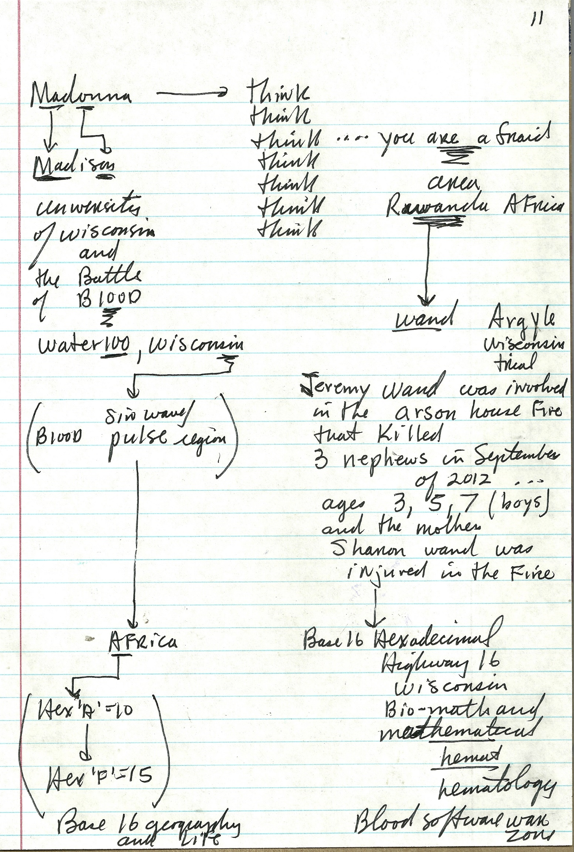 11
Madonna → think
think
think .... you are afraid
think
think
think
think
area
Rawanda Africa
Madison
University
of wisconsin
and
the Battle
of B100D
water100, wisconsin
(B100D Sin wave/
pulse region)
wand Argyle
wisconsin
trial
Jeremy wand was involved
in the arson house Fire
that Killed
3 nephews in September
of 2012 ...
ages 3, 5, 7 (boys)
and the mother
Shanon wand was
injured in the Fire
AFrica
(Hex 'A'=10
Hex 'F'=15)
Base 16 geography
and Life
Base 16 Hexadecimal
Highway 16
wisconsin
Bio-math and
mathematics
hemat
hematology
Blood software war
zone